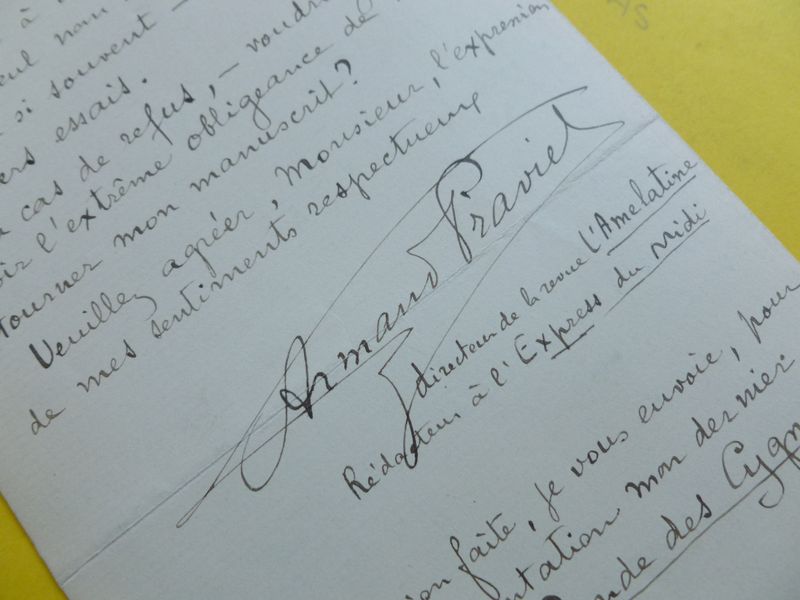 si souvent
essais.
cas de refus, – voudri
l'extrême obligeance de
tourner mon manuscrit?
Veuillez agréer, Monsieur, l'expression
de mes sentiments respectueux
Armand Praviel
directeur de la revue l'Ame latine
Rédacteur à l'Express du Midi
ion faite, je vous envoie, pour
ntation mon dernier
nde des Cygn